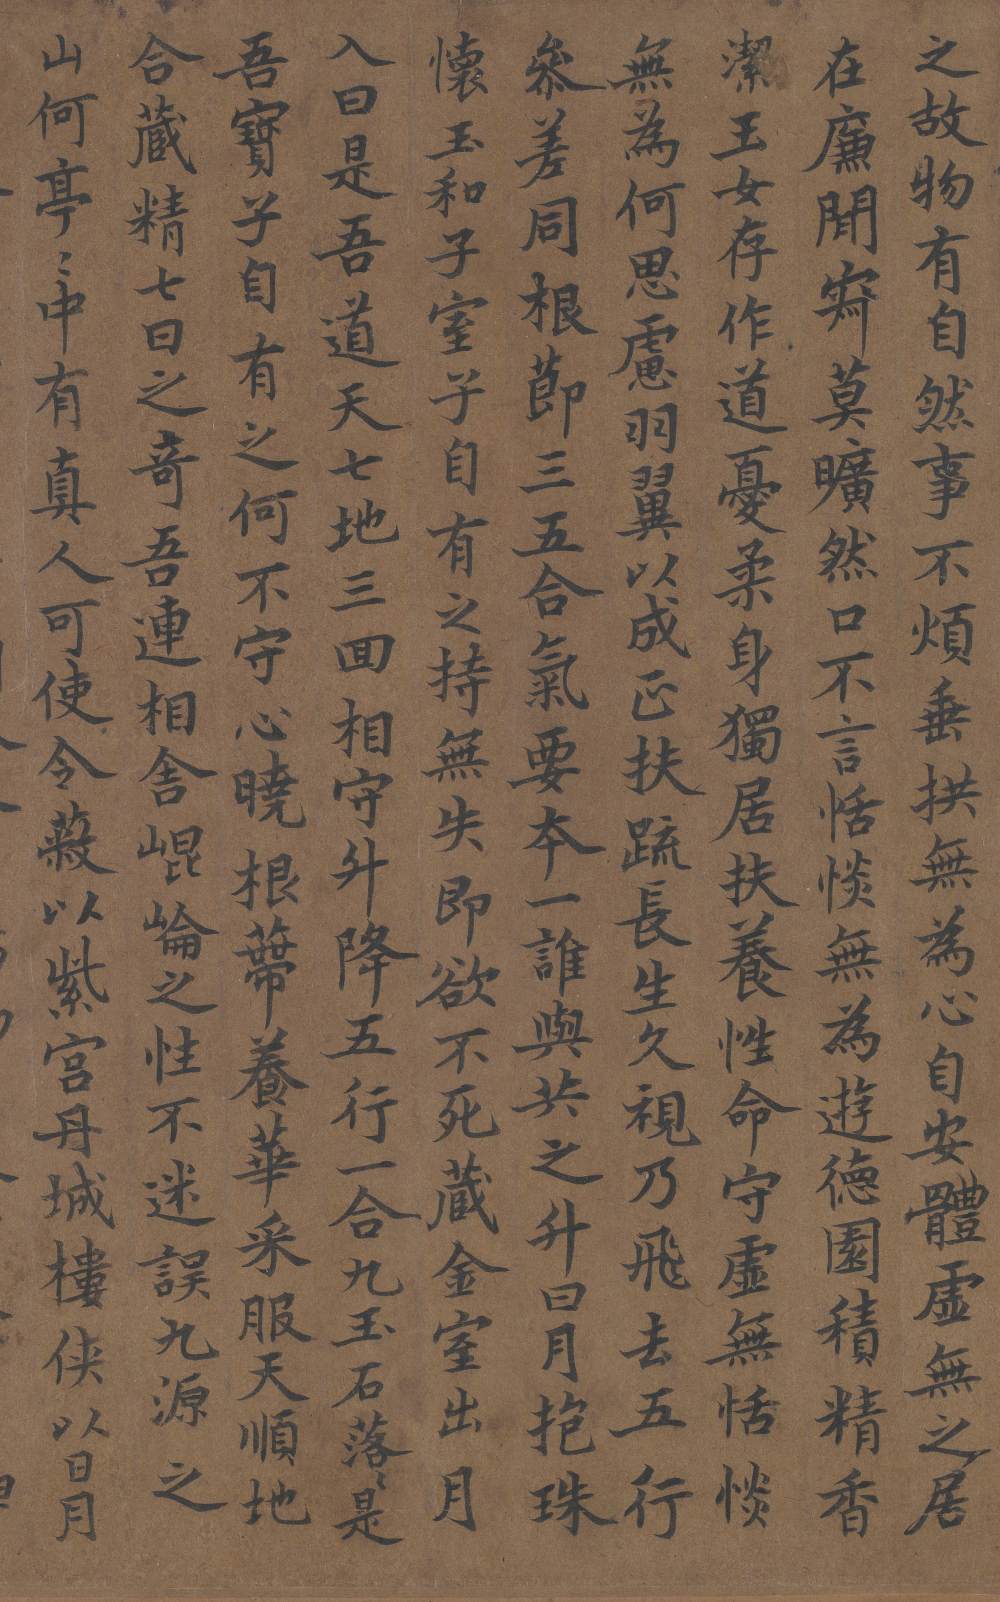 之故物有自然事不煩垂拱無為心自安體虛無之居
在廉閒㝛莫曠然口不言恬惔無為遊德園積精香
潔玉女存作道憂柔身獨居扶養性命守虛無恬惔
無為何思慮羽翼以成正扶疏長生久視乃飛去五行
叅差同根節三五合氣要本一誰與共之升日月抱珠
懷玉和子室子自有之持無失即欲不死藏金室出月
入日是吾道天七地三回相守升降五行一合九玉石落〻是
吾寶子自有之何不守心曉根蔕養華采服天順地
合藏精七日之奇吾連相舍崐崘之性不迷誤九源之
山何亭〻中有真人可使令蔽以紫宮丹城樓俠以日月